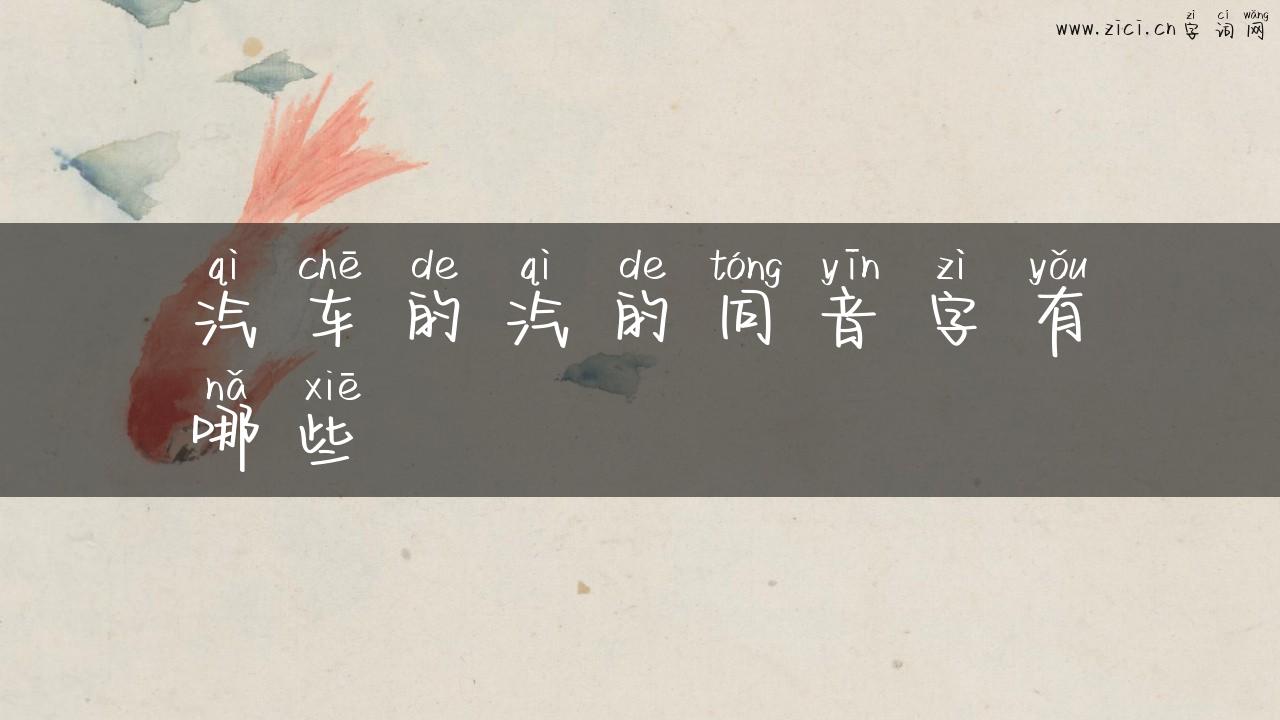 zì cí wǎng
www.zici.cn 字 词 网
qì chē de qì de tóng yīn zì yǒu
汽 车 的 汽 的 同 音 字 有
nǎ xiē
哪 些